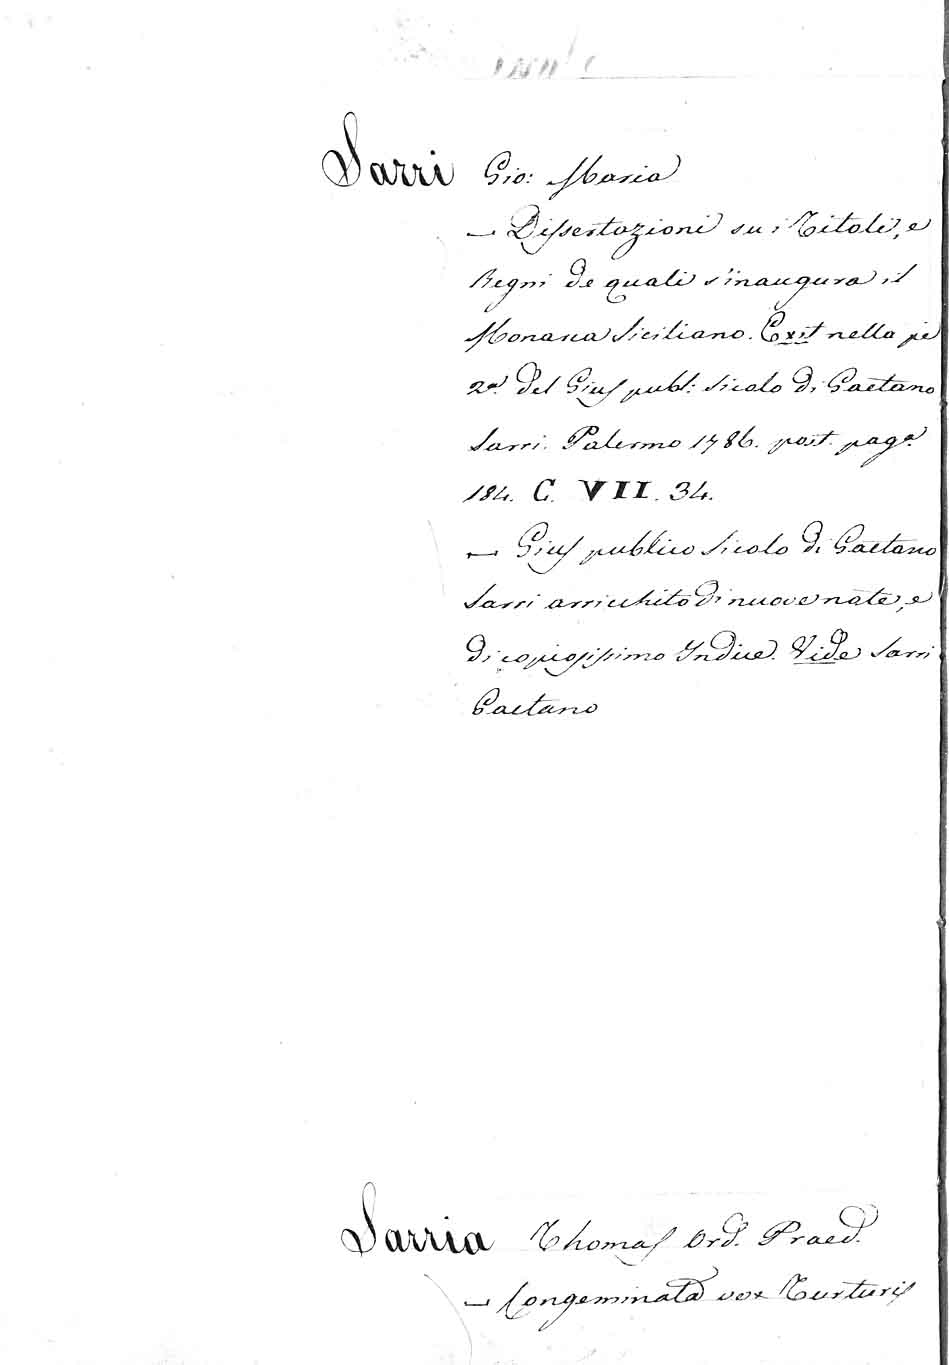 Sarri Gio: Maria
— Dissertazioni su i Titoli, e
Regni de quali s'inaugura il
Monarca Siciliano. Exit nella pe
2ª del Gius publ: Sicolo di Gaetano
Sarri. Palermo 1786. post. pagª
184. C. VII. 34.
— Gius publico Sicolo di Gaetano
Sarri arricchito di nuove note, e
di copiosissimo Indice. Vide Sarri
Gaetano
Sarria Thomas Ord. Praed.
— Congeminata vox Turturis